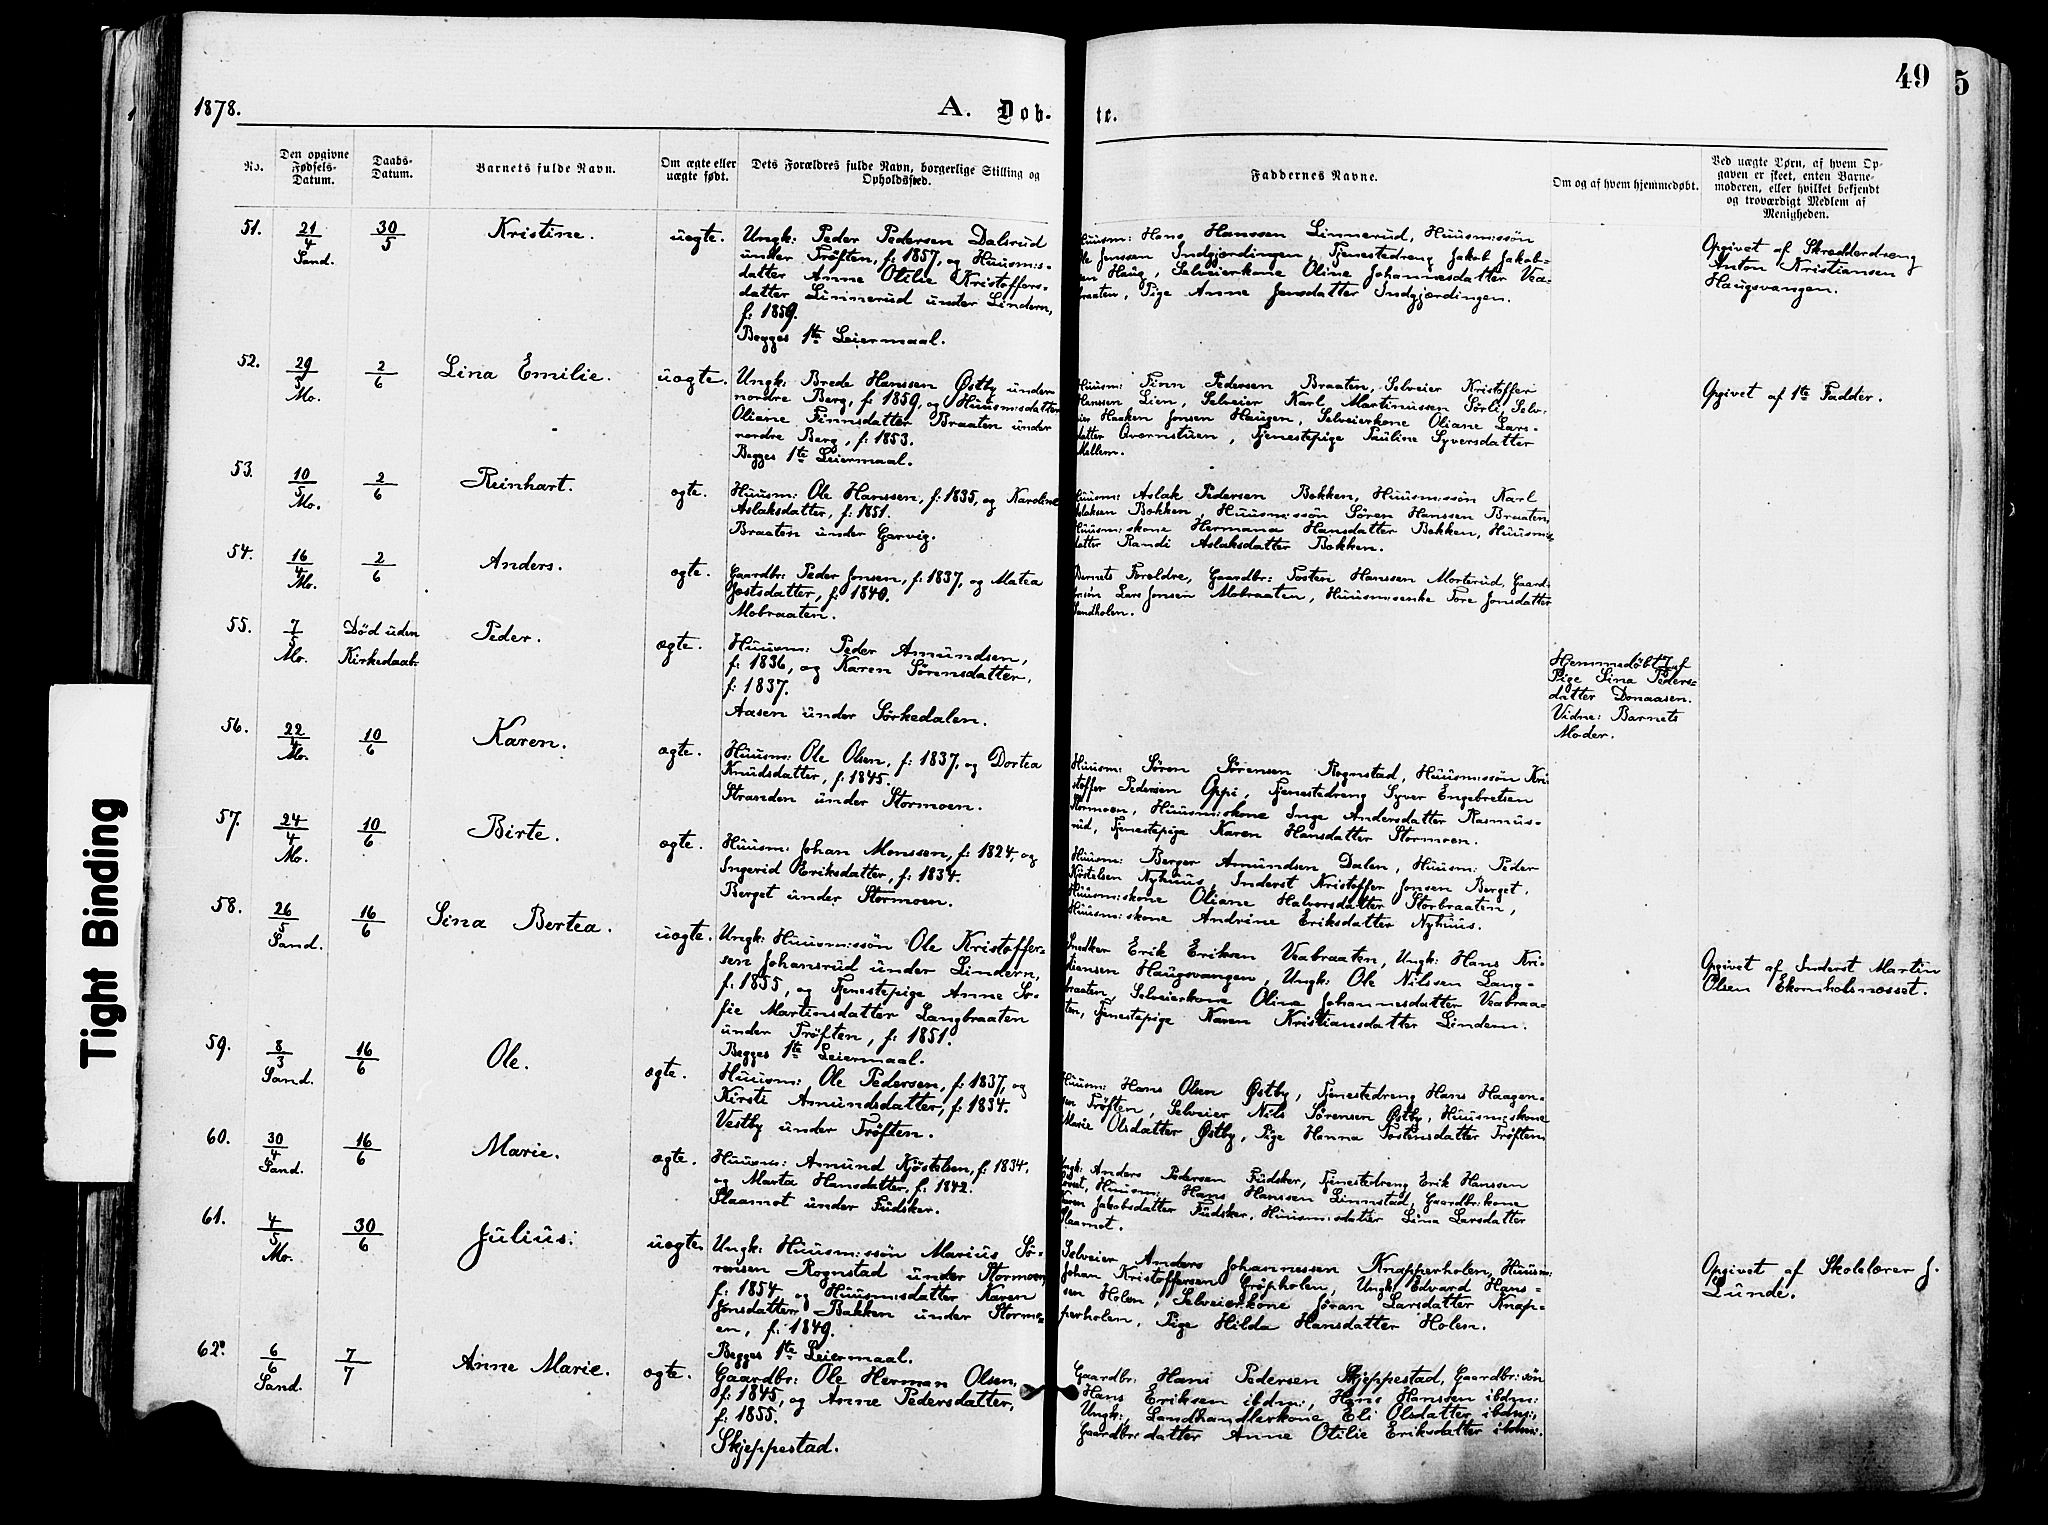 49
5
1878.
A. Døb-
te.
No.
Den opgivne
Fødsels-
Datum.
Daabs-
Datum.
Barnets fulde Navn.
Om ægte eller
uægte født.
Dets Forældres fulde Navn, borgerlige Stilling og
Opholdssted.
Faddernes Navne.
Om og af hvem hjemmedøbt.
Ved uægte Børn, af hvem Op-
gaven er skeet, enten Barne-
moderen, eller hvilket bekjendt
og troværdigt Medlem af
Menigheden.
51.
21/4
Sand.
30/5
Kristine.
uægte.
Ungk: Peder Pedersen Dalsrud
under Tröften, f: 1857, og Huusm:s-
datter Anne Otilie Kristoffers-
datter Linnerud under Lindern,
f: 1859.
Begges 1te Leiermaal.
Huusm: Hans Hanssen Linnerud, Huusm:ssön
Ole Jenssen Indgjærdingen, Tjenestedreng Jakob Jakob-
sen Haug, Selveierkone Oline Johannesdatter Vea-
braaten, Pige Anne Jensdatter Indgjærdingen.
Opgivet af Skrædderdreng
Anton Kristiansen
Haugsvangen.
52.
29/5
Mo.
2/6
Lina Emilie.
uægte.
Ungk: Brede Hanssen Østby under
nordre Berg, f: 1859, og Huusm:sdatter
Oliane Finnsdatter Braaten under
nordre Berg, f: 1853.
Begges 1te Leiermaal.
Huusm: Finn Pedersen Braaten, Selveier Kristoffer
Hanssen Lien, Selveier Karl Martinussen Sörli, Selv-
eier Haaken Jonsen Haugen, Selveierkone Oliane Lars-
datter Qvernstuen, Tjenestepige Pauline Syversdatter
Mellem.
Opgivet af 1te Fadder.
53.
10/5
Mo.
2/6
Reinhart.
ægte.
Huusm: Ole Hanssen, f: 1835, og Karoline
Aslaksdatter, f: 1851.
Braaten under Garvig.
Huusm: Aslak Pedersen Bakken, Huusm:ssön Karl
Aslaksen Bakken, Huusm:ssön Sören Hanssen Braaten,
Huusm:skone Hermana Hansdatter Bakken, Huusm:s
datter Randi Aslaksdatter Bakken.
54.
16/4
Mo.
2/6
Anders.
ægte.
Gaardbr: Peder Jonsen, f: 1837, og Matea
Jostsdatter, f: 1840.
Mobraaten.
Barnets Forældre, Gaardbr: Tosten Hanssen Morterud, Gaard-
Lars Jonsen Mobraaten, Huusm:senke Tore Jonsdatter
Sandholen.
55.
7/5
Mo.
Död uden
Kirkedaab.
Peder.
ægte.
Huusm: Peder Amundsen,
f: 1836, og Karen Sörensdatter,
f: 1837.
Aasen under Sörkedalen.
Hjemmedöbt 7/5 af
Pige Sina Peders-
datter Donaasen.
Vidne: Barnets
Moder.
56.
22/4
Mo.
10/6
Karen.
ægte.
Huusm: Ole Olsen, f: 1837, og Dortea
Knudsdatter, f: 1845.
Stranden under Stormoen.
Huusm: Sören Sörensen Rognstad, Huusm:ssön Kri-
stoffer Pedersen Oppi, Tjenestedreng Syver Engebretsen
Stormoen, Huusm:skone Inge Andersdatter Rasmus-
rud, Tjenestepige Karen Hansdatter Stormoen.
57.
24/4
Mo.
10/6
Birte.
ægte.
Huusm: Johan Monssen, f: 1824, og
Ingerid Eriksdatter, f: 1834.
Berget under Stormoen.
Huusm: Berger Amundsen Dalen, Huusm: Peder
Kjöstelsen Nyhuus, Inderst Kristoffer Jonsen Berget,
Huusm:skone Oliane Halvorsdatter Storbraaten,
Huusm:skone Andrine Eriksdatter Nyhuus.
58.
26/5
Sand.
16/6
Sina Bertea.
uægte.
Ungk: Huusm:ssön Ole Kristoffer-
sen Johansrud under Lindern,
f: 1855, og Tjenestepige Anne So-
fie Martinsdatter Langbraaten
under Tröften, f: 1851.
Begges 1te Leiermaal.
Snedker Erik Eriksen Veabraaten, Ungk: Hans Kri-
stiansen Haugsvangen, Ungk: Ole Nilssen Lang-
braaten, Selveierkone Olina Johannesdatter Veabraa-
ten, Tjenestepige Karen Kristiansdatter Lindern.
Opgivet af Inderst Martin
Olsen Ekornholsnæsset.
59.
8/3
Sand.
16/6
Ole.
ægte.
Huusm: Ole Pedersen, f: 1837, og
Kirsti Amundsdatter, f: 1834.
Vestby under Tröften.
Huusm: Hans Olsen Østby, Tjenestedreng Hans Haagen-
sen Tröften, Selveier Nils Sörensen Østby, Huusm:skone
Marie Olsdatter Østby, Pige Hanna Tostensdatter Tröften.
60.
30/4
Sand.
16/6
Marie.
ægte.
Huusm: Amund Kjöstelsen, f: 1834,
og Marta Hansdatter, f: 1842.
Slaamot under Fudsker.
Ungk: Anders Pedersen Fudsker, Tjenestedreng Erik Hanssen
Huusm: Hans Hanssen Linnstad, Gaardbr:kone
Karen Jakobsdatter Fudsker, Huusm:sdatter Lina Larsdatter
Slaamot.
61.
4/5
Mo.
30/6
Julius.
uægte.
Ungk: Huusm:ssön Marius Sö-
rensen Rognstad under Stormoen,
f: 1854, og Huusm:sdatter Karen
Jonsdatter Bakken under Stormo-
en, f: 1849.
Begges 1te Leiermaal.
Selveier Anders Johannessen Knapperholen, Huusm:
Johan Kristoffersen Gröpholen, Ungk: Edvard Hans-
sen Holen, Selveierkone Jöran Larsdatter Knap-
perholen, Pige Hilda Hansdatter Holen.
Opgivet af Skolelærer J.
Lunde.
62.
6/6
Sand.
7/7
Anne Marie.
ægte.
Gaardbr: Ole Herman Olsen,
f: 1845, og Anne Pedersdatter,
f: 1855.
Skjeppestad.
Gaardbr: Hans Pedersen Skjeppestad, Gaardbr:sön
Hans Eriksen ibdm:, Hans Hanssen ibdm:
Ungk:, Landhandlerkone Eli Olsdatter ibdm:,
Gaardbr:datter Anne Otilie Eriksdatter ibdm:.
Tight Binding